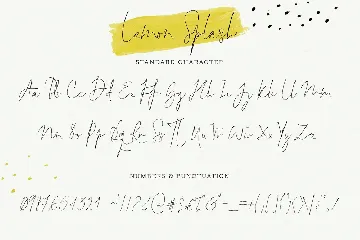 Lemon Splash
STANDARD CHARACTER
Aa Bb Cc Dd Ee Ff Gg Hh Ii Jj Kk Ll Mm
Nn Oo Pp Qq Rr Ss Tt Uu Vv Ww Xx Yy Zz
NUMBERS & PUNCTUATION